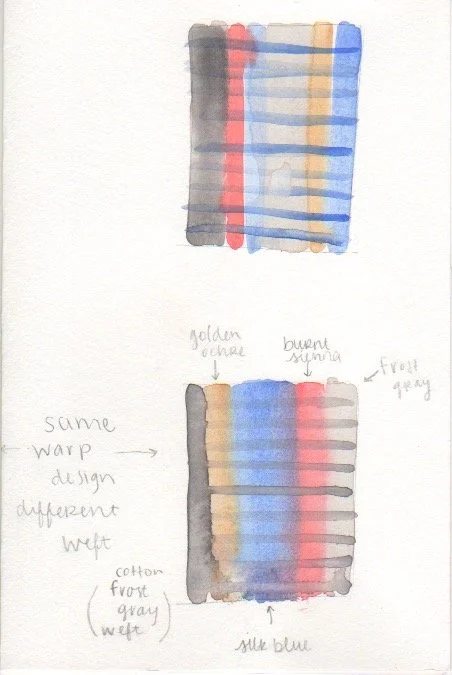 golden
ochre
burnt
frost
gray
same
warp
design
different
weft
(cotton
frost
gray
weft)
silk blue